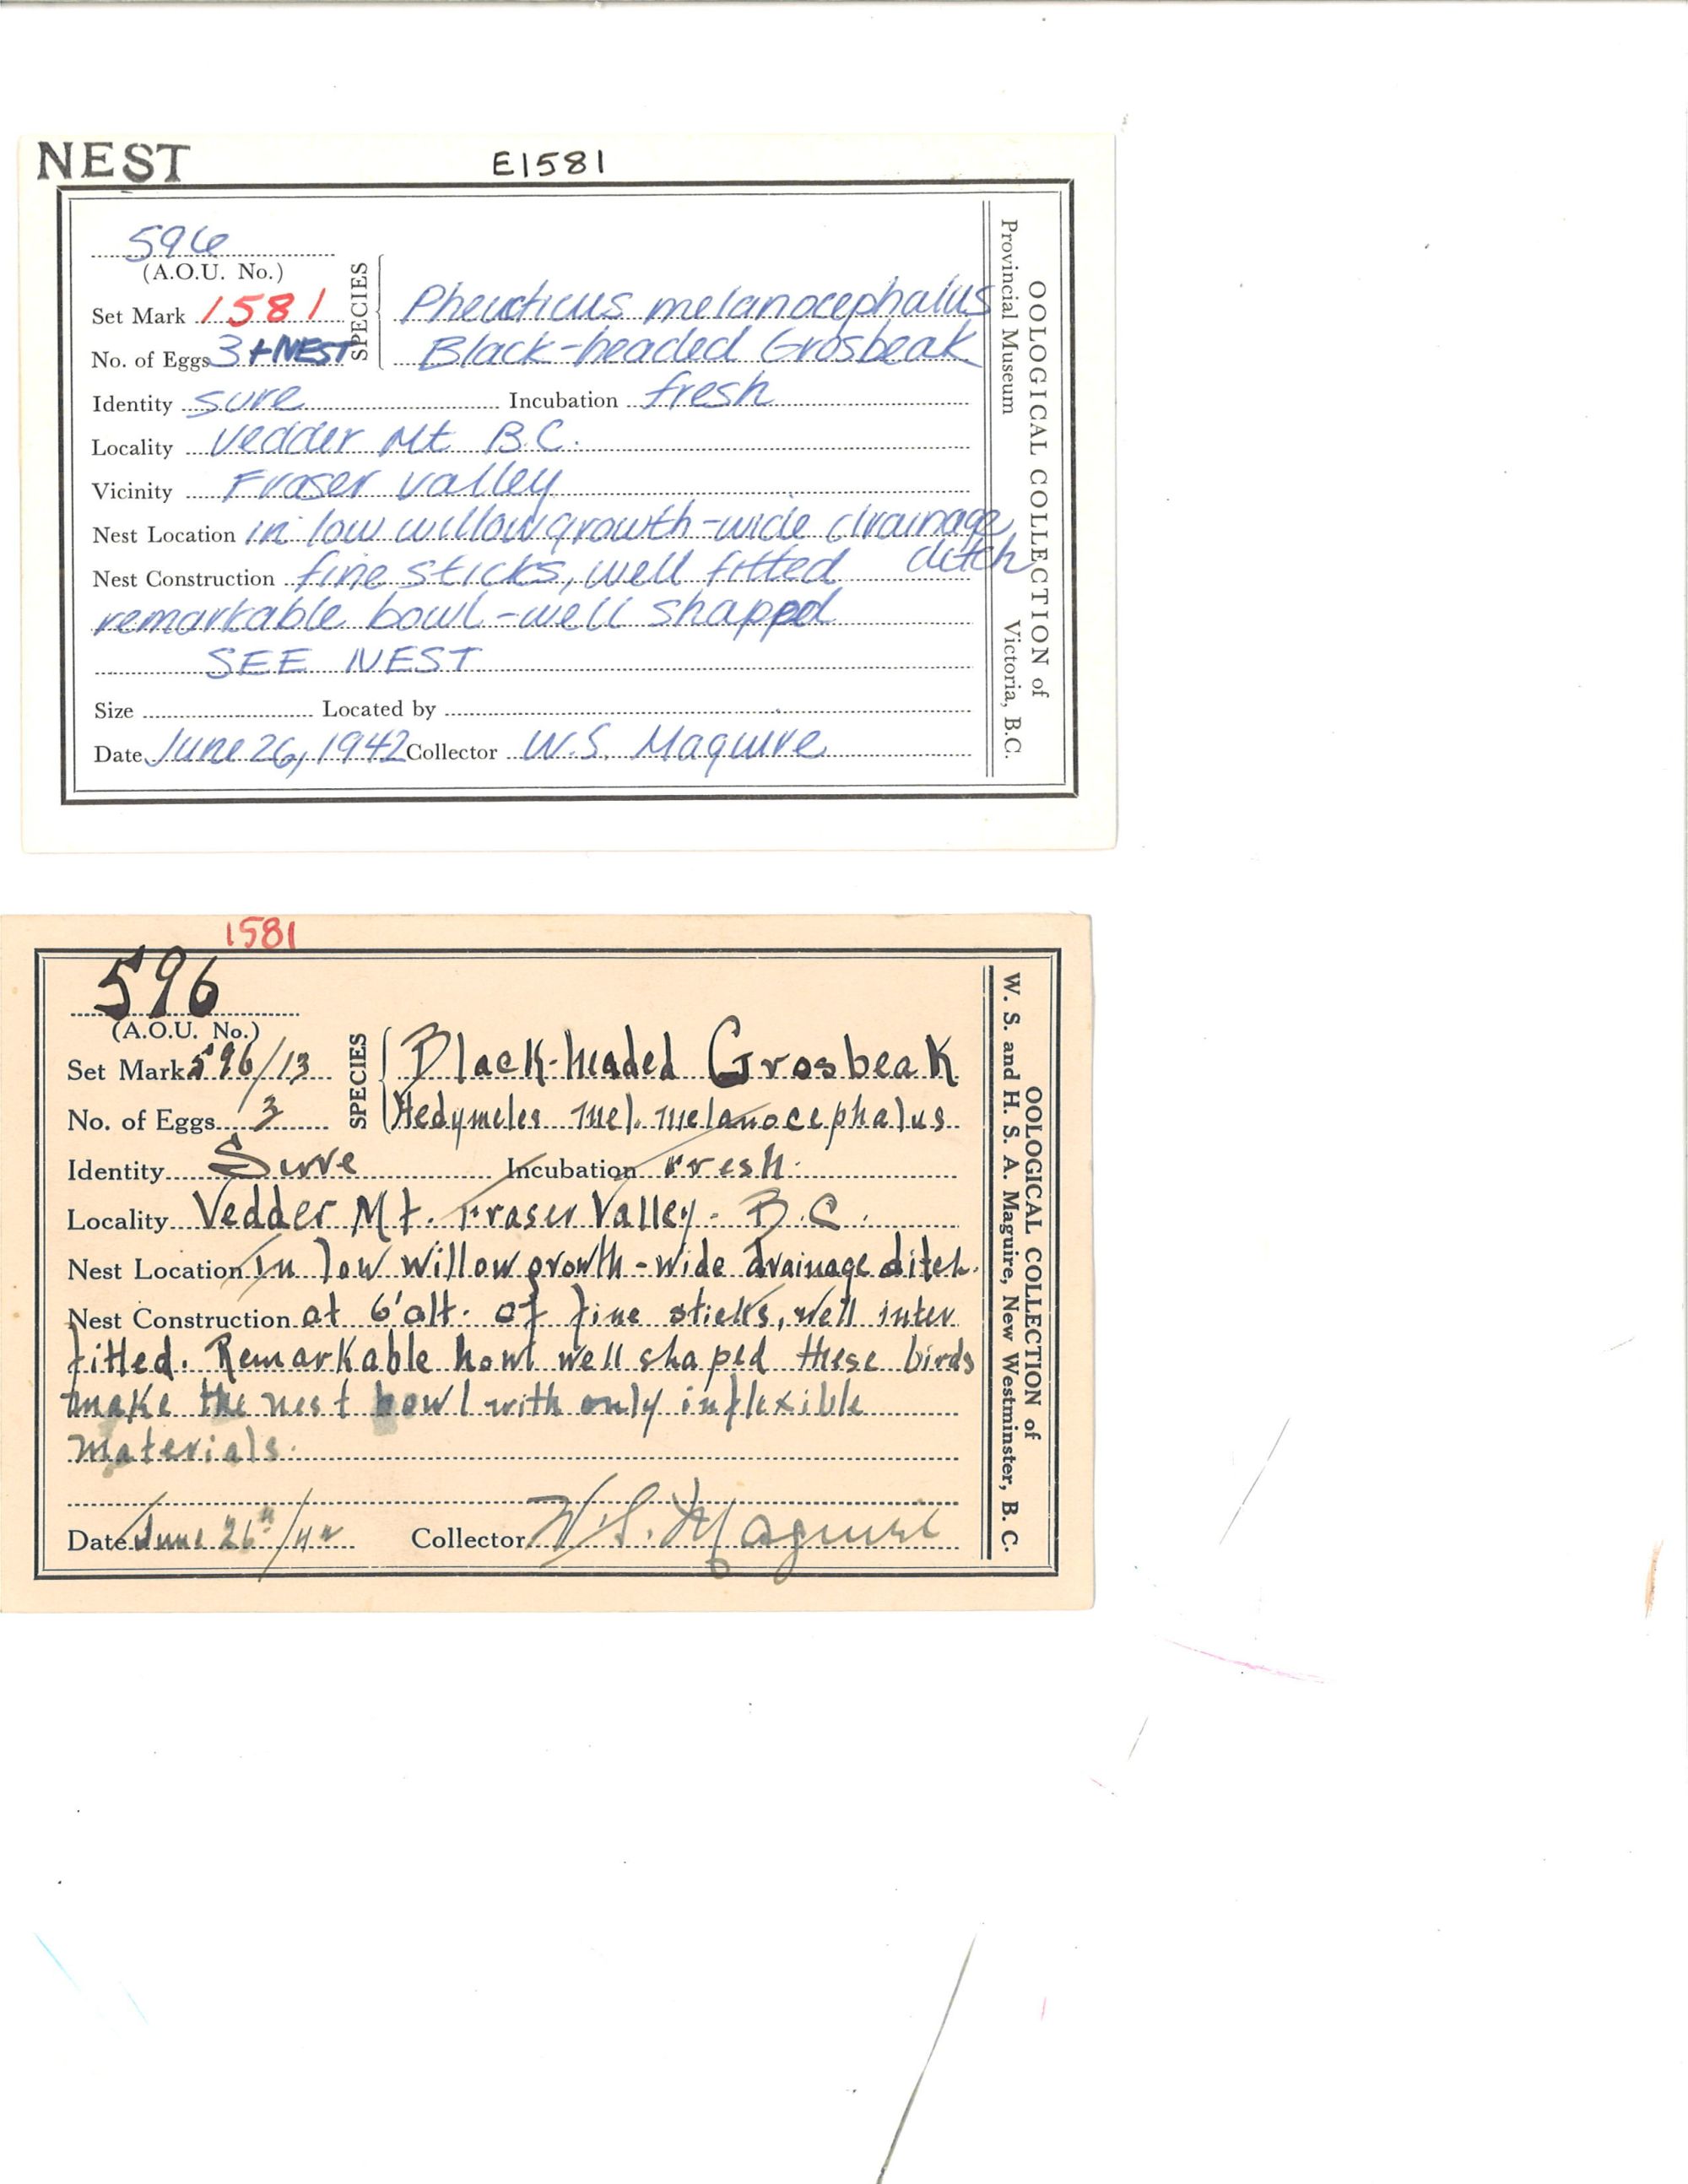 NEST
E1581
596
(A.O.U. No.)
Set Mark 1581
No. of Eggs 3 + NEST
SPECIES
Pheucticus melanocephalus
Black-headed Grosbeak
Identity sure Incubation fresh
Locality Vedder Mt B.C.
Vicinity Fraser Valley
Nest Location in low willow growth-wide drainage
ditch
Nest Construction fine sticks, well fitted
remarkable bowl-well shapped
SEE NEST
Size Located by
Date June 26, 1942 Collector W.S. Maguire
OOLOGICAL COLLECTION of
Provincial Museum Victoria, B.C.
1581
596
(A.O.U. No.)
Set Mark 596/13
No. of Eggs 3
SPECIES
Black-headed Grosbeak
Hedymeles mel. melanocephalus
Identity Sure Incubation Fresh.
Locality Vedder Mt. Fraser Valley - B.C.
Nest Location In low willow growth - wide drainage ditch.
Nest Construction at 6' alt. of fine sticks, well inter
fitted. Remarkable how well shaped these birds
make the nest bowl with only inflexible
materials.
Date June 26th/42 Collector W.S. Maguire
OOLOGICAL COLLECTION of
W. S. and H. S. A. Maguire, New Westminster, B. C.